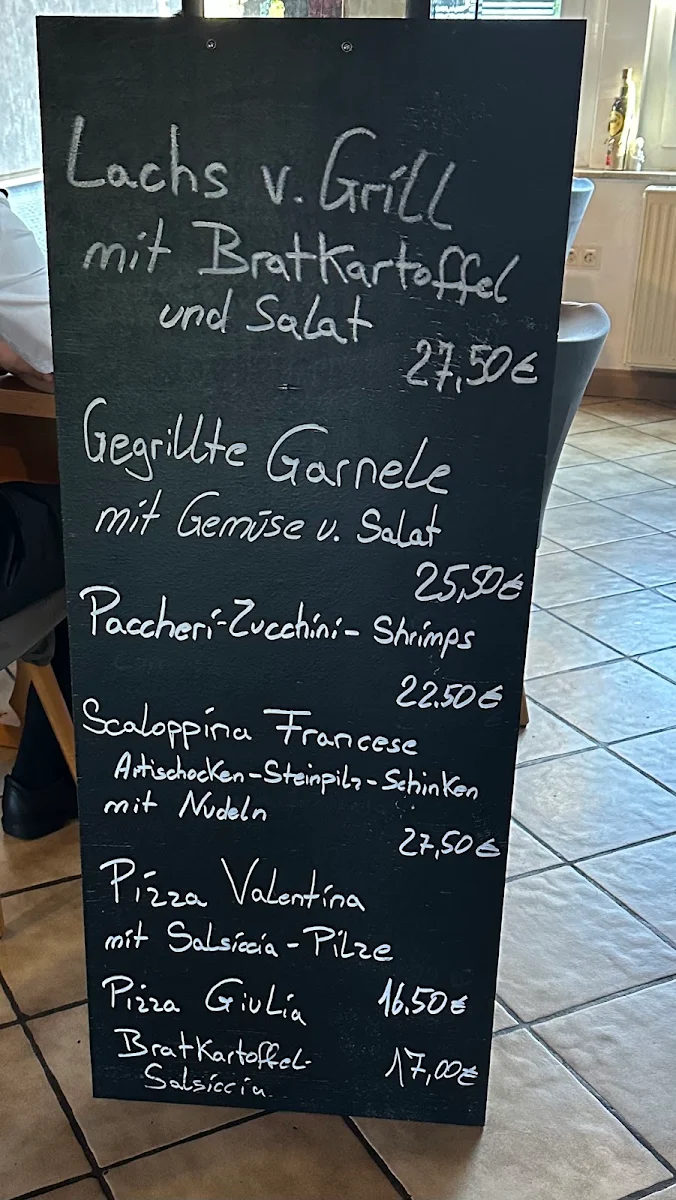 Lachs v. Grill
mit Bratkartoffel
und Salat
27,50€
Gegrillte Garnele
mit Gemüse u. Salat
25,50€
Paccheri-Zucchini-Shrimps
22.50€
Scaloppina Francese
Artischocken-Steinpilz-Schinken
mit Nudeln
27,50€
Pizza Valentina
mit Salsiccia-Pilze
16.50€
Pizza Giulia
Bratkartoffel-
17,00€
Salsiccia